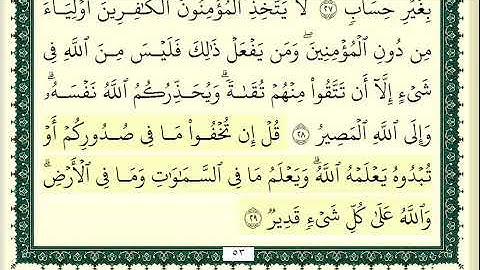 بِغَيْرِ حِسَابٍ ٢٧ لَّا يَتَّخِذِ ٱلْمُؤْمِنُونَ ٱلْكَٰفِرِينَ أَوْلِيَآءَ
مِن دُونِ ٱلْمُؤْمِنِينَ ۖ وَمَن يَفْعَلْ ذَٰلِكَ فَلَيْسَ مِنَ ٱللَّهِ فِى
شَىْءٍ إِلَّآ أَن تَتَّقُوا۟ مِنْهُمْ تُقَىٰةً ۗ وَيُحَذِّرُكُمُ ٱللَّهُ نَفْسَهُۥ ۗ
وَإِلَى ٱللَّهِ ٱلْمَصِيرُ ٢٨ قُلْ إِن تُخْفُوا۟ مَا فِى صُدُورِكُمْ أَوْ
تُبْدُوهُ يَعْلَمْهُ ٱللَّهُ ۗ وَيَعْلَمُ مَا فِى ٱلسَّمَٰوَٰتِ وَمَا فِى ٱلْأَرْضِ ۗ
وَٱللَّهُ عَلَىٰ كُلِّ شَىْءٍ قَدِيرٌ ٢٩
٥٣